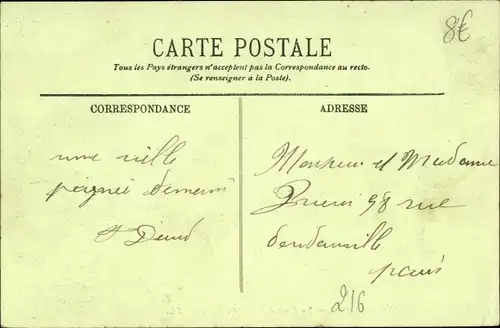 8€
CARTE POSTALE
Tous les Pays étrangers n'acceptent pas la Correspondance au recto.
(Se renseigner à la Poste).
CORRESPONDANCE
ADRESSE
une mille
poignée de main
Monsieur et Madame
98 rue
paris
216